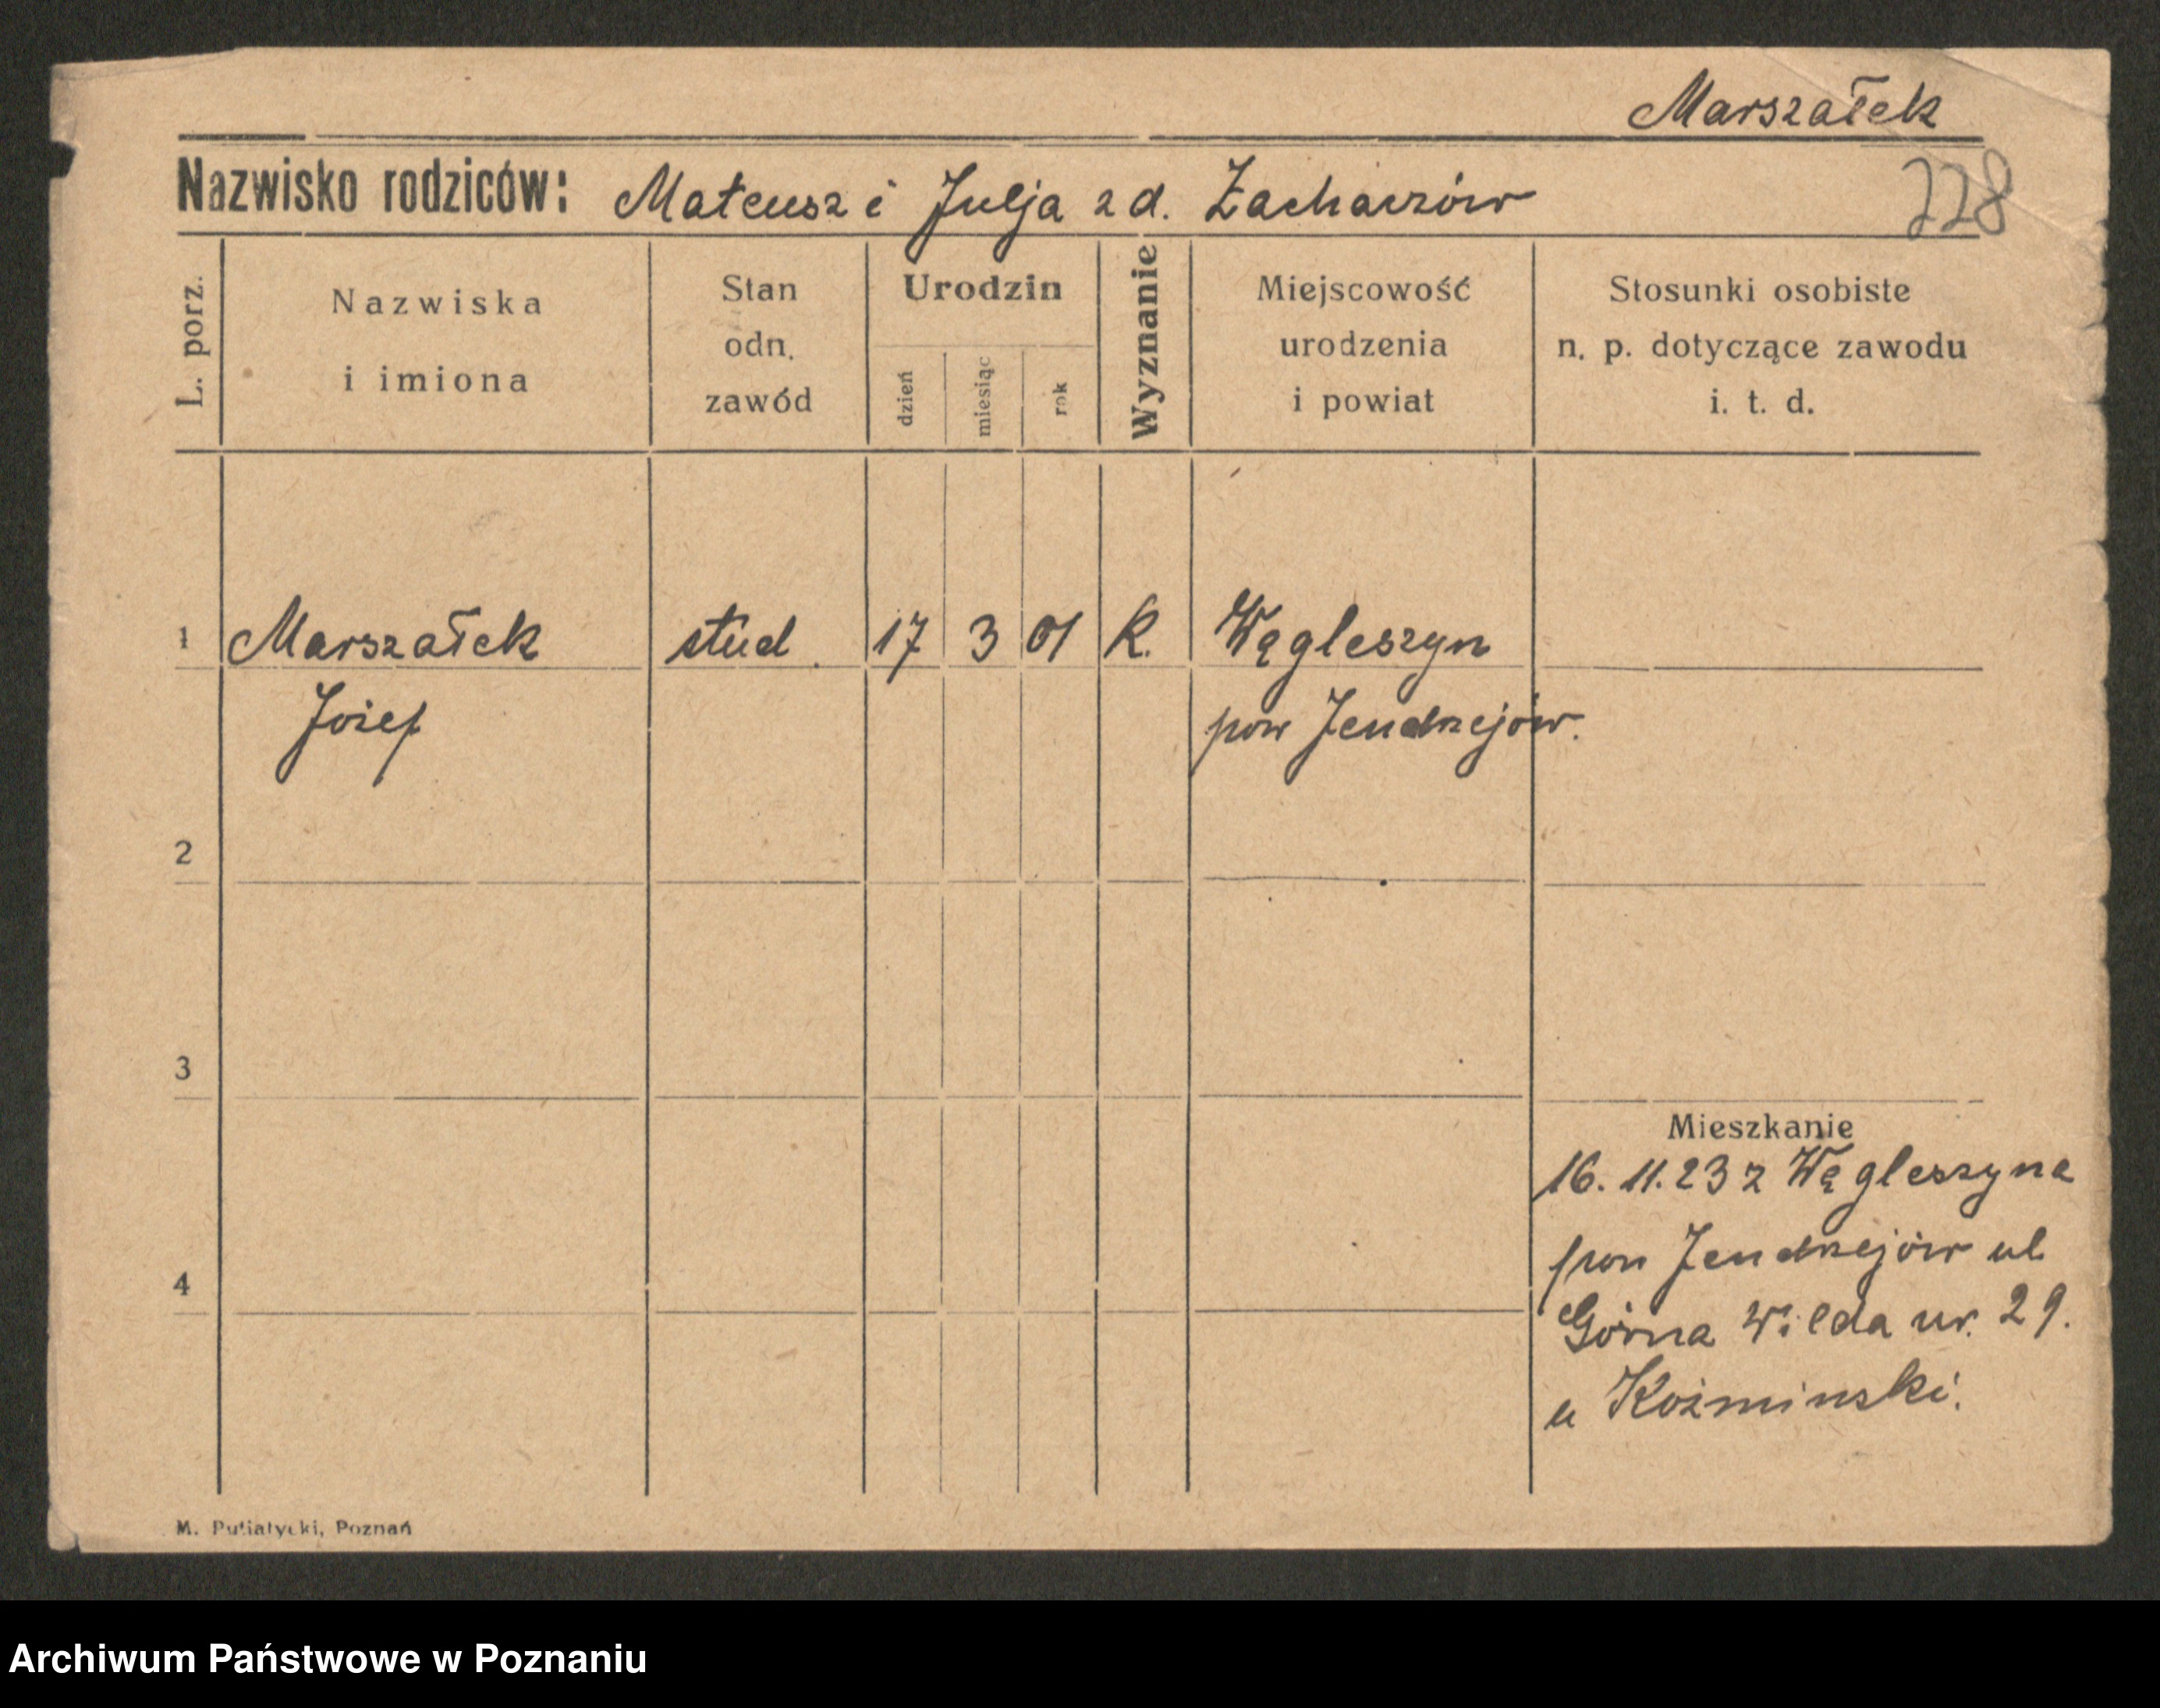 Marszałek
Nazwisko rodziców: Mateusz i Julja z d. Zachaczów
228
L. porz.
Nazwiska
i imiona
Stan
odn.
zawód
Urodzin
dzień
miesiąc
rok
Wyznanie
Miejscowość
urodzenia
i powiat
Stosunki osobiste
n. p. dotyczące zawodu
i. t. d.
1 Marszałek stud. 17 3 01 K. Węgleszyn
Józef pow Jendrzejów.
2
3
Mieszkanie
16. 11. 23 z Węgleszyna
pow Jendrzejów ul
4
Górna Wilda nr. 29.
u Koźminski.
M. Putiatycki, Poznań
Archiwum Państwowe w Poznaniu